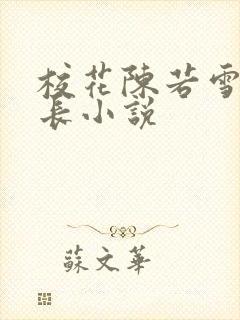 校花陈若雪
長小說
蘇文華